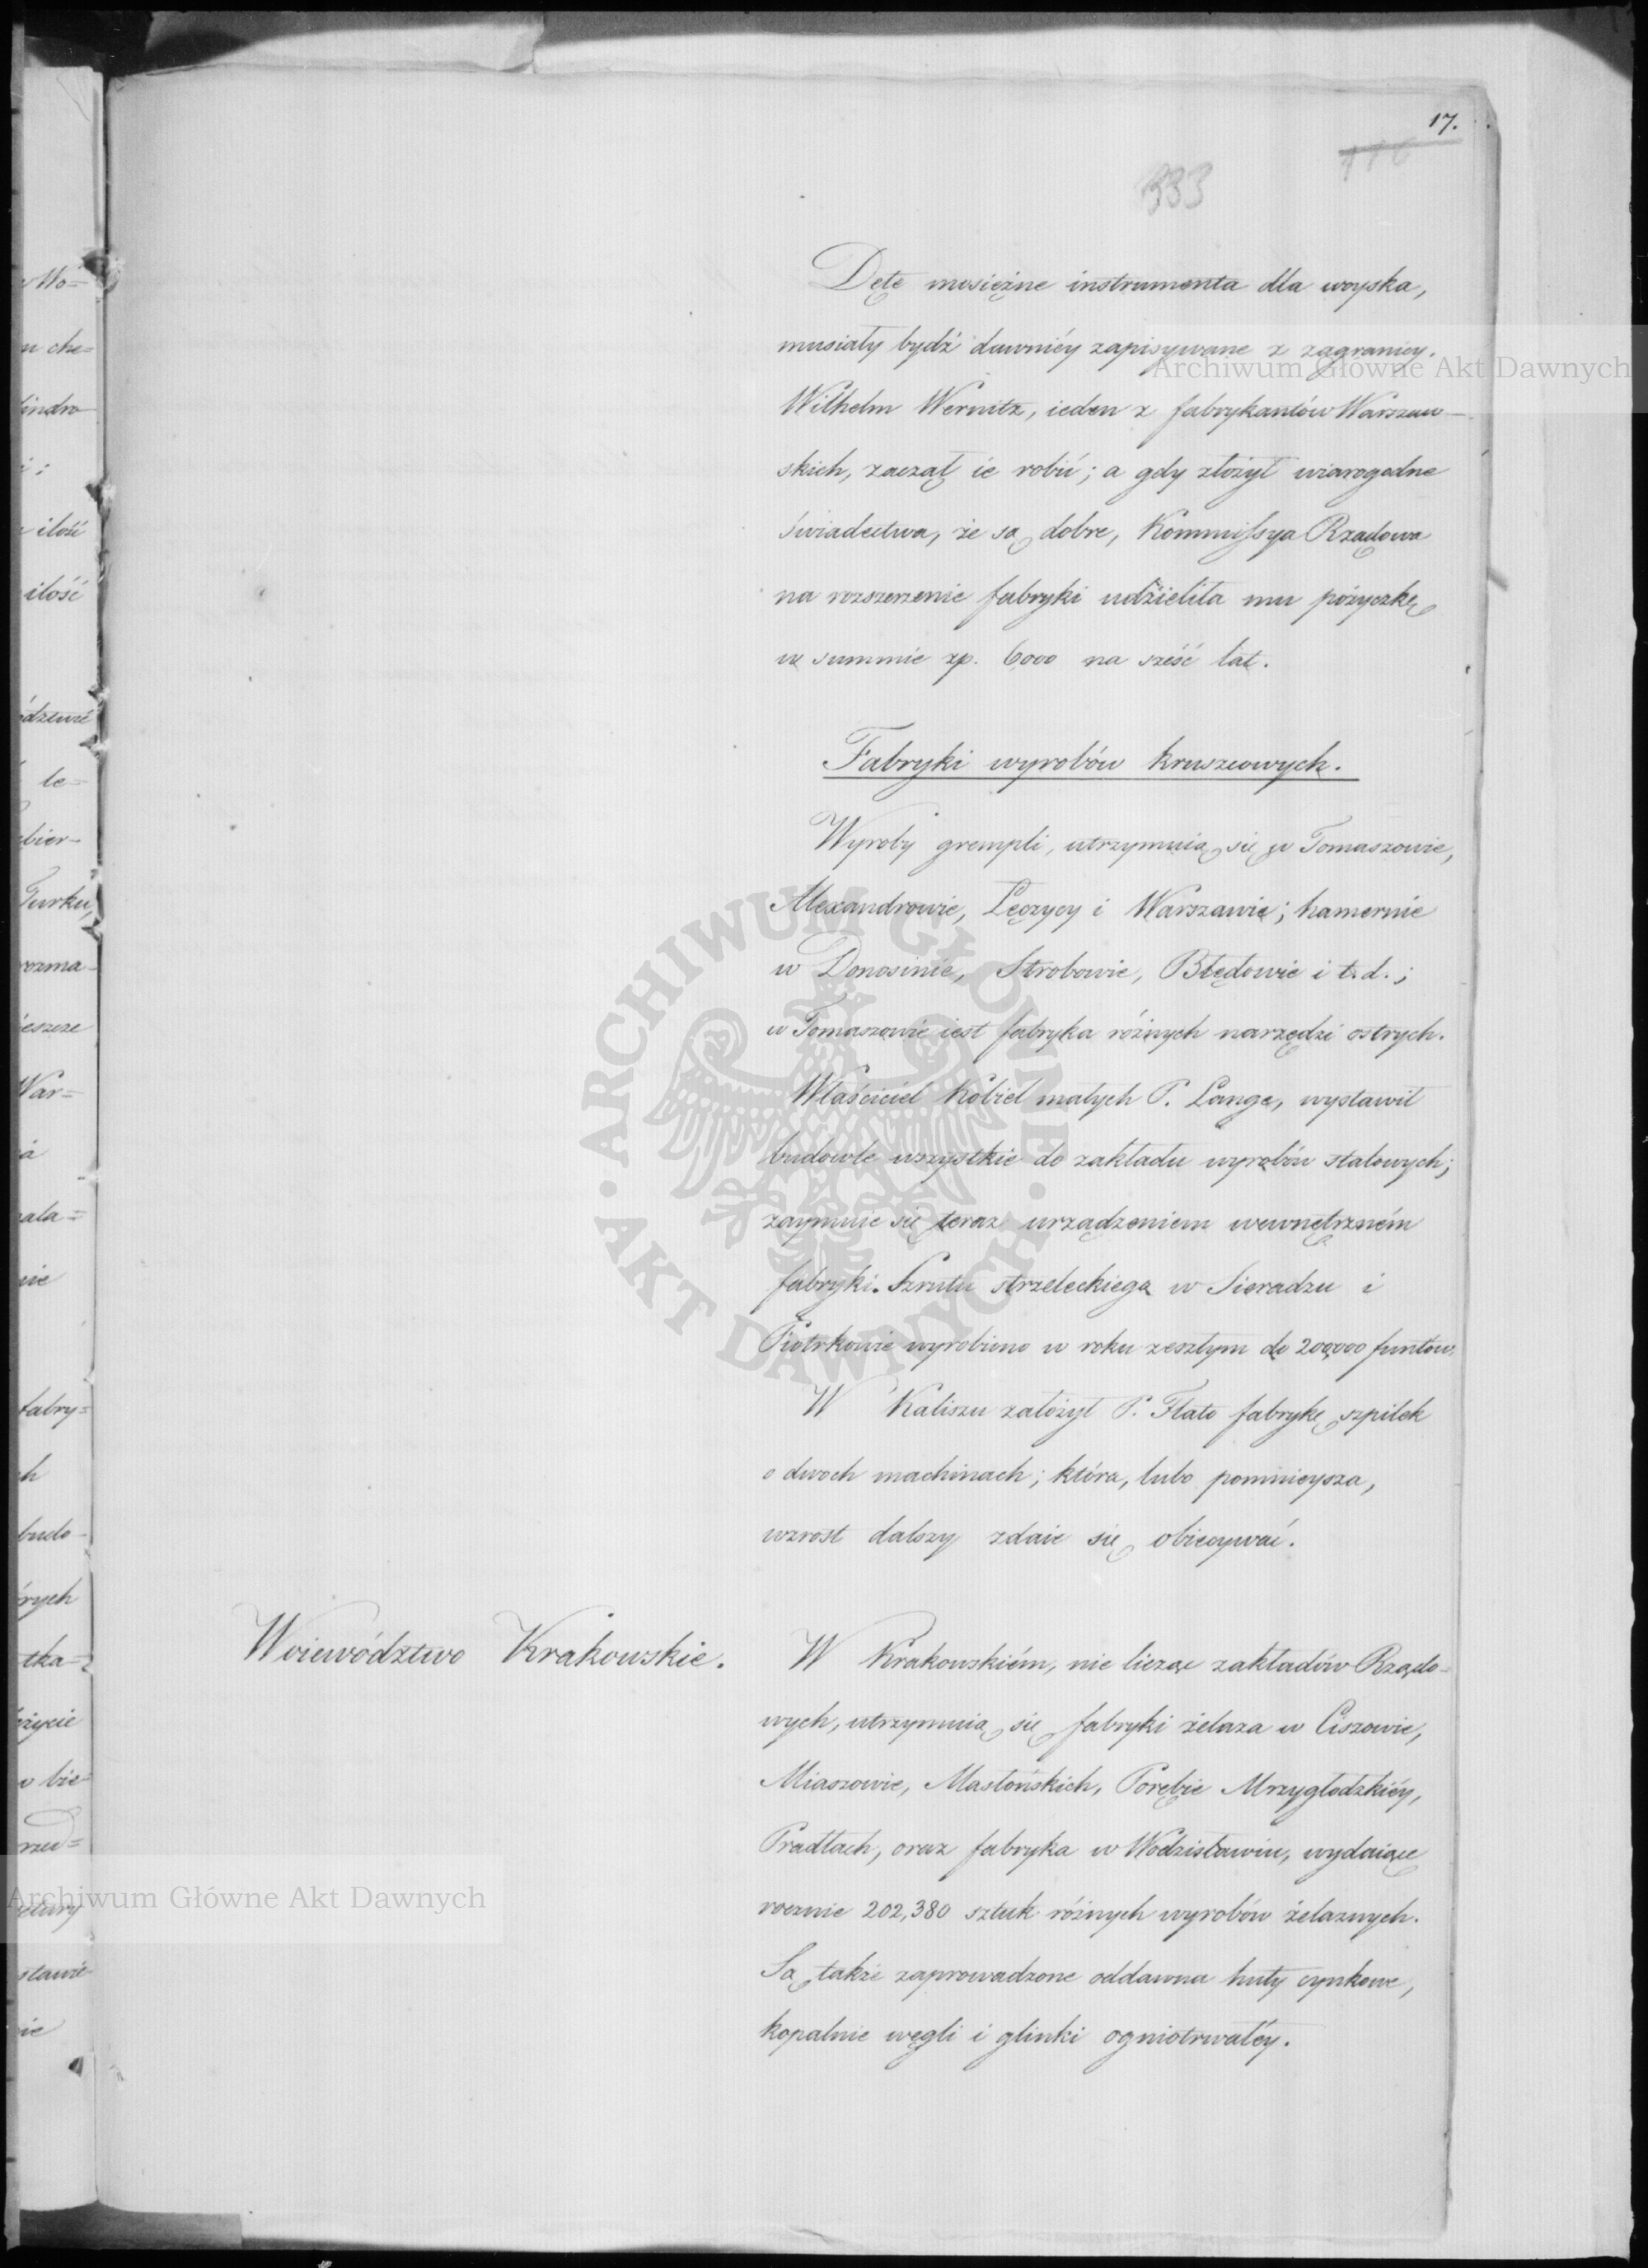 17.
333
Dęte mosiężne instrumenta dla woyska,
musiały bydź dawniéy zapisywane z zagranicy.
Wilhelm Wernitz, ieden z fabrykantów Warszaw-
skich, zaczął ie robić; a gdy złożył wiarogodne
świadectwa, że są dobre, Kommissya Rządowa
na rozszerzenie fabryki udzieliła mu pożyczkę
w summie zp. 6000 na sześć lat.
Fabryki wyrobów kruszcowych.
Wyroby grempli, utrzymuią się w Tomaszowie,
Alexandrowie, Łęczycy i Warszawie; hamernie
w Donosinie, Strobowie, Błędowie i t. d.;
w Tomaszowie iest fabryka różnych narzędzi ostrych.
Właściciel Kobiel małych P. Lange, wystawił
budowle wszystkie do zakładu wyrobów stalowych;
zaymuie się teraz urządzeniem wewnętrzném
fabryki. Szrutu strzeleckiego w Sieradzu i
Piotrkowie wyrobiono w roku zeszłym do 200,000 funtów.
W Kaliszu założył P. Flato fabrykę szpilek
o dwoch machinach; która, lubo pomnieysza,
wzrost dalszy zdaie się obiecywać.
Woiewództwo Krakowskie.
W Krakowskiém, nie licząc zakładów Rządo-
wych, utrzymuią się fabryki żelaza w Ciszowie,
Miaszowie, Masłońskich, Porębie Mrzygłodzkiéy,
Pradłach, oraz fabryka w Wodzisławiu, wydaiące
rocznie 202,380 sztuk różnych wyrobów żelaznych.
Są także zaprowadzone oddawna huty cynkowe,
kopalnie węgli i glinki ogniotrwałéy.
Archiwum Główne Akt Dawnych
Archiwum Główne Akt Dawnych
ARCHIWUM GŁÓWNE
AKT DAWNYCH